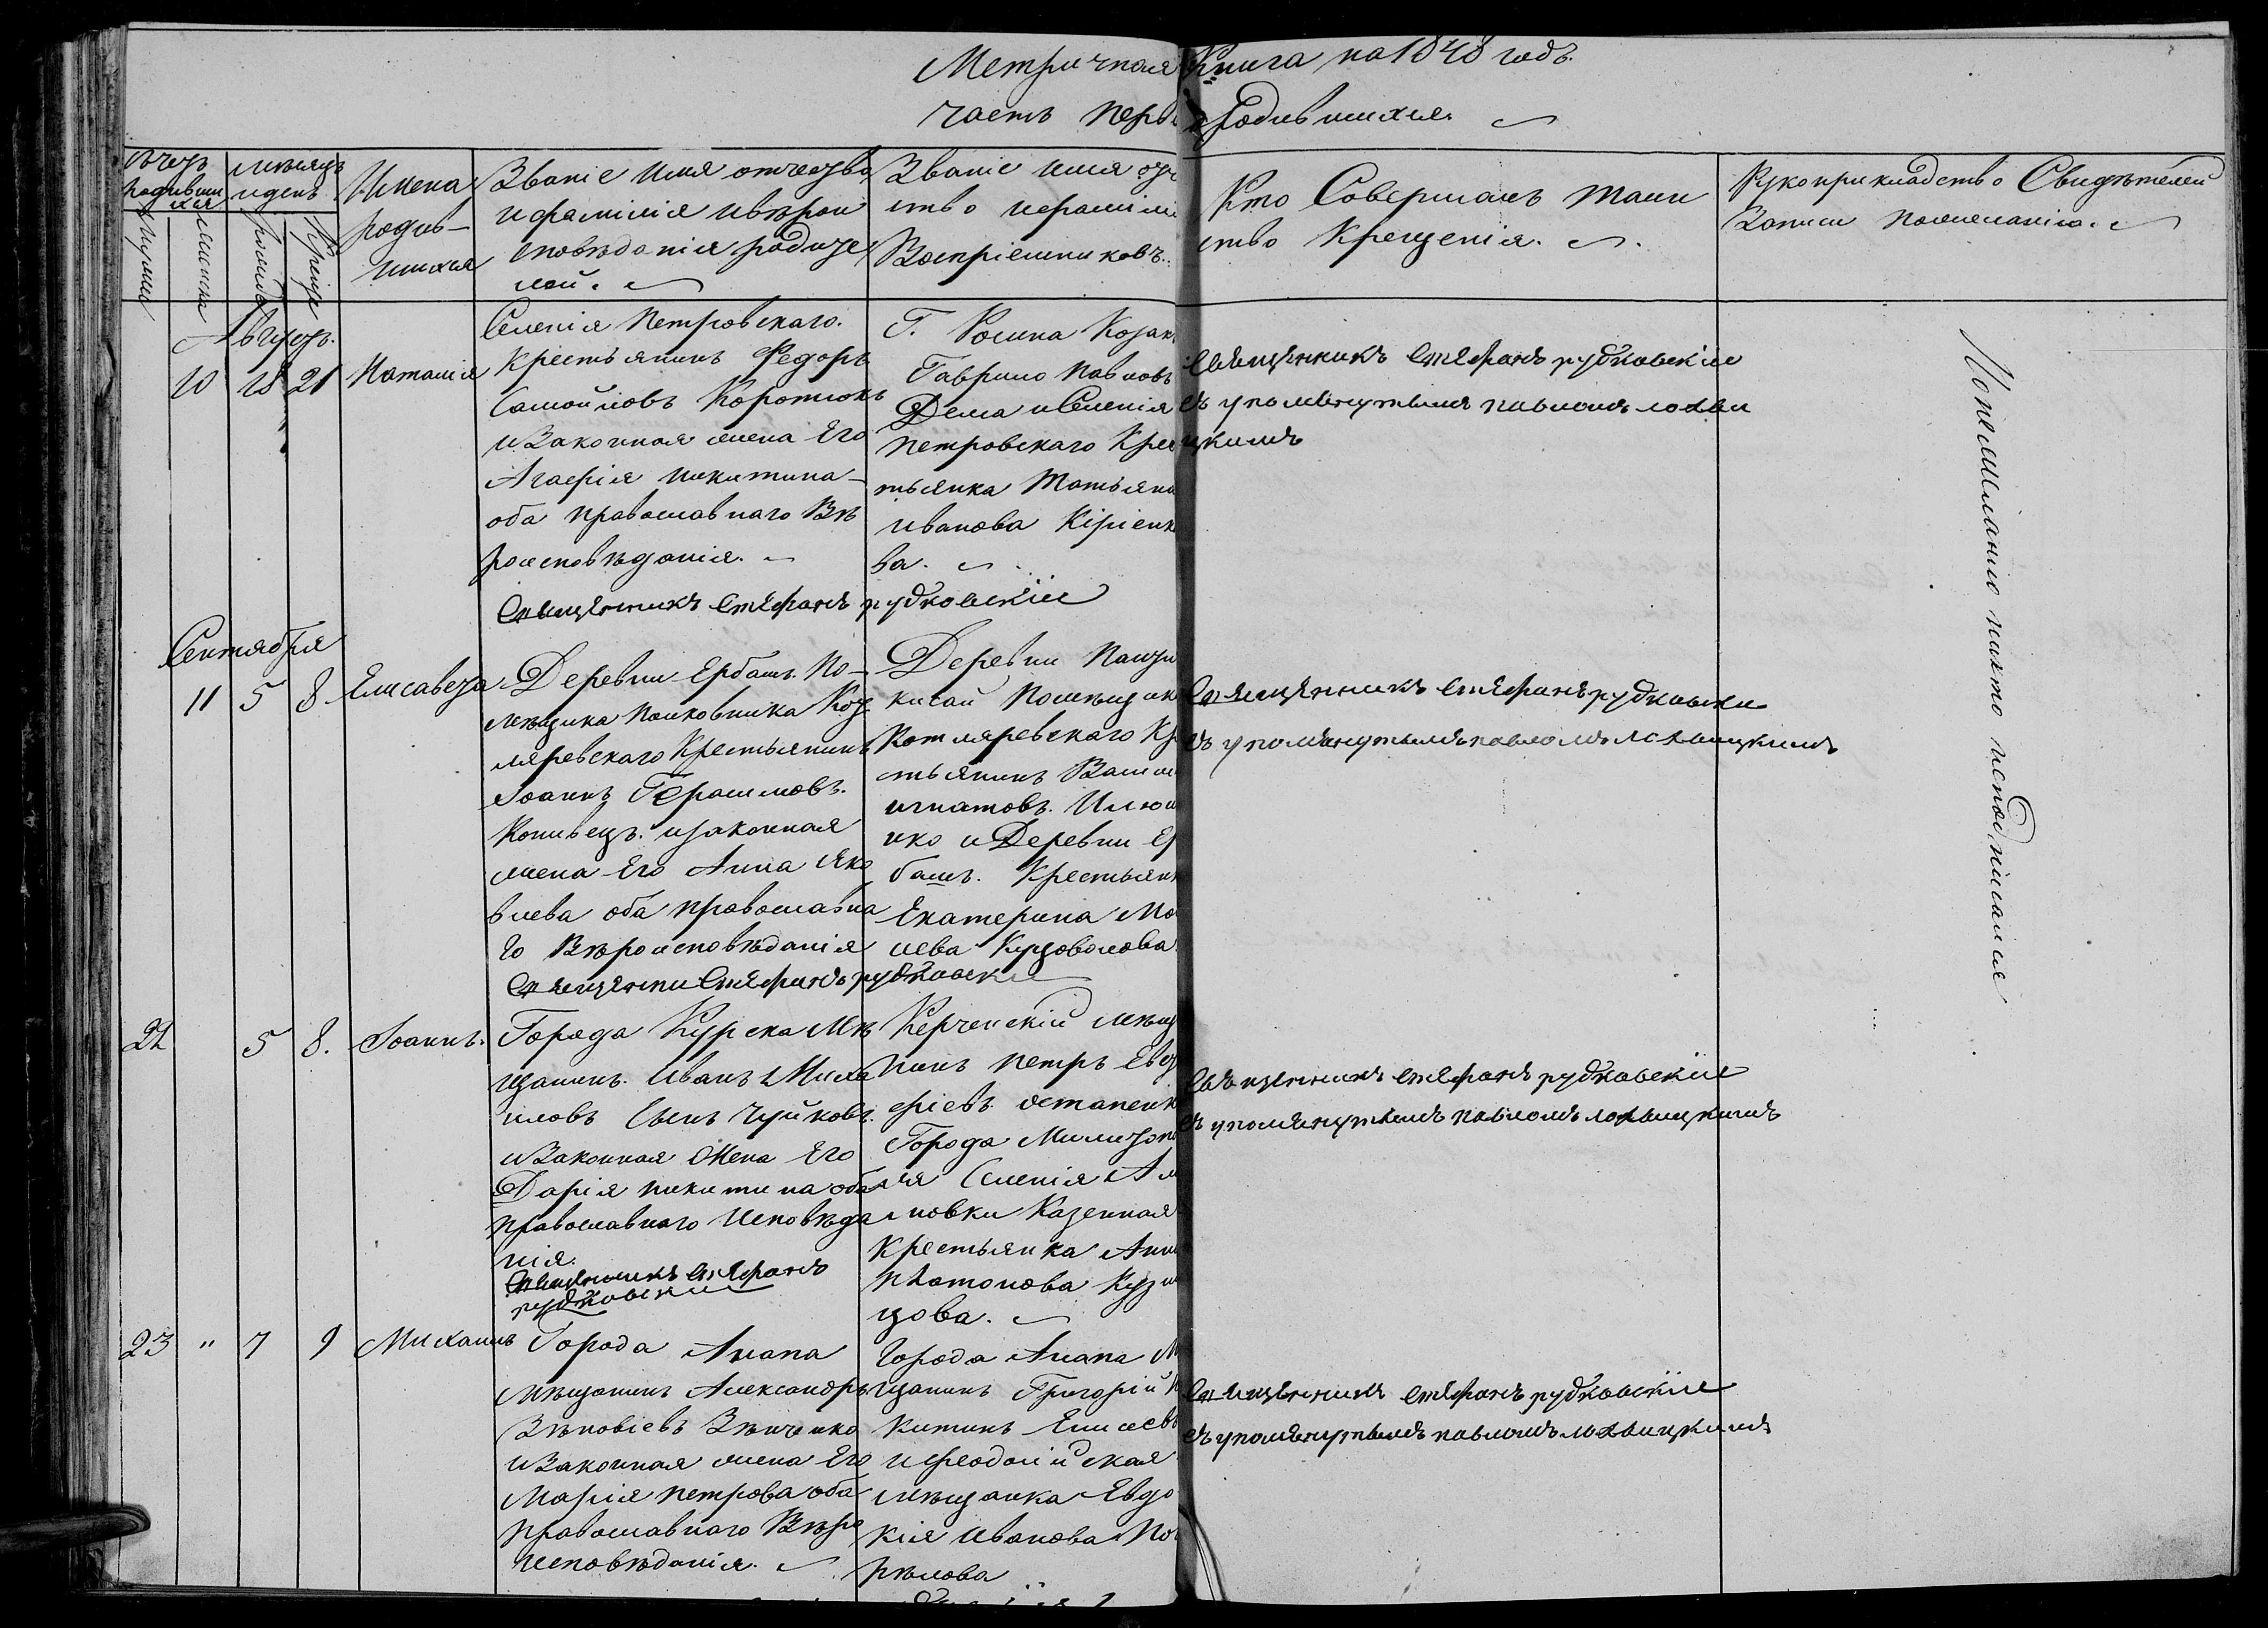 Метричная Книга на 1848 годъ.
часть перв о родившихся.
Счетъ родивши хся
мужеска
женска
месяцъ и день
рожденія
крещенія
Имена
родив-
шихся
Званіе имя отчество
и фамилія и вѣрои
сповѣданія родите
лей.
Званіе имя оте
ство и фамилі
Воспріемниковъ.
Кто Совершалъ таин
ство Крещенія.
Рукоприкладство Свидѣтелей
Записи по желанію.
Августъ.
10 18 21 Наталія
Селенія Петровскаго.
Крестьянинъ Федоръ
Самойловъ Коротюкъ
и Законная жена Его
Агафія Никитина
оба православнаго Вѣ
роисповѣданія.
Священникъ Стефанъ Рудковскій
Г. Козак
Гаврило Павловъ
Дема и Селенія
Петровскаго Крес
тьянка Татьяна
Иванова Кірiенк
ва.
Священникъ Стефанъ Рудковскій
съ упомянутымъ Павломъ Лохви
цкимъ
Сентября
11 5 8 Елисавета
Деревни Ербашъ По-
мѣщика Полковника Кот
ляревскаго Крестьянинъ
Іоаннъ Герасимовъ.
Копивецъ. и законная
жена Его Анна Яко
влева оба православна
го Вѣроисповѣданія
Священни Стефанъ Рудковскі
Деревни
китай Помѣщик
Котляревскаго Кр
тьянинъ Васил
Игнатовъ. Илюш
нко и Деревни Ер
башъ. Крестьянк
Екатерина Мо
сева Куцоволова
Священникъ Стефанъ Рудковскі
съ упомянутымъ Павломъ Лохвицкимъ
22 5 8. Іоаннъ.
Города Курска Мѣ
щанинъ. Иванъ Миха
иловъ Сынъ Чуйковъ.
и Законная жена Его
Дарія Никитина оба
православнаго Исповѣда
нія.
Священникъ Стефанъ
Рудковскій
Керченскій мѣщ
нинъ Петръ Евст
фіевъ Остапенк
Города Мелитопо
ля Селенія
новки Казенная
Крестьянка Анн
Платонова Кузн
цова.
Священникъ Стефанъ Рудковскій
съ упомянутымъ Павломъ Лохвицкимъ
23 " 7 9 Михаилъ
Города Анапа
мѣщанинъ Александръ
Зѣновіевъ Зѣнченко
и Законная жена Его
Марія Петрова оба
православнаго Вѣро
исповѣданія.
Города Анапа М
щанинъ Григорій Н
китинъ Елисеевъ
и феодосійская
мѣщанка Евдо
кія Иванова По
рѣлова
Священникъ Стефанъ Рудковскій
съ упомянутымъ Павломъ Лохвицкимъ
никто неподписался